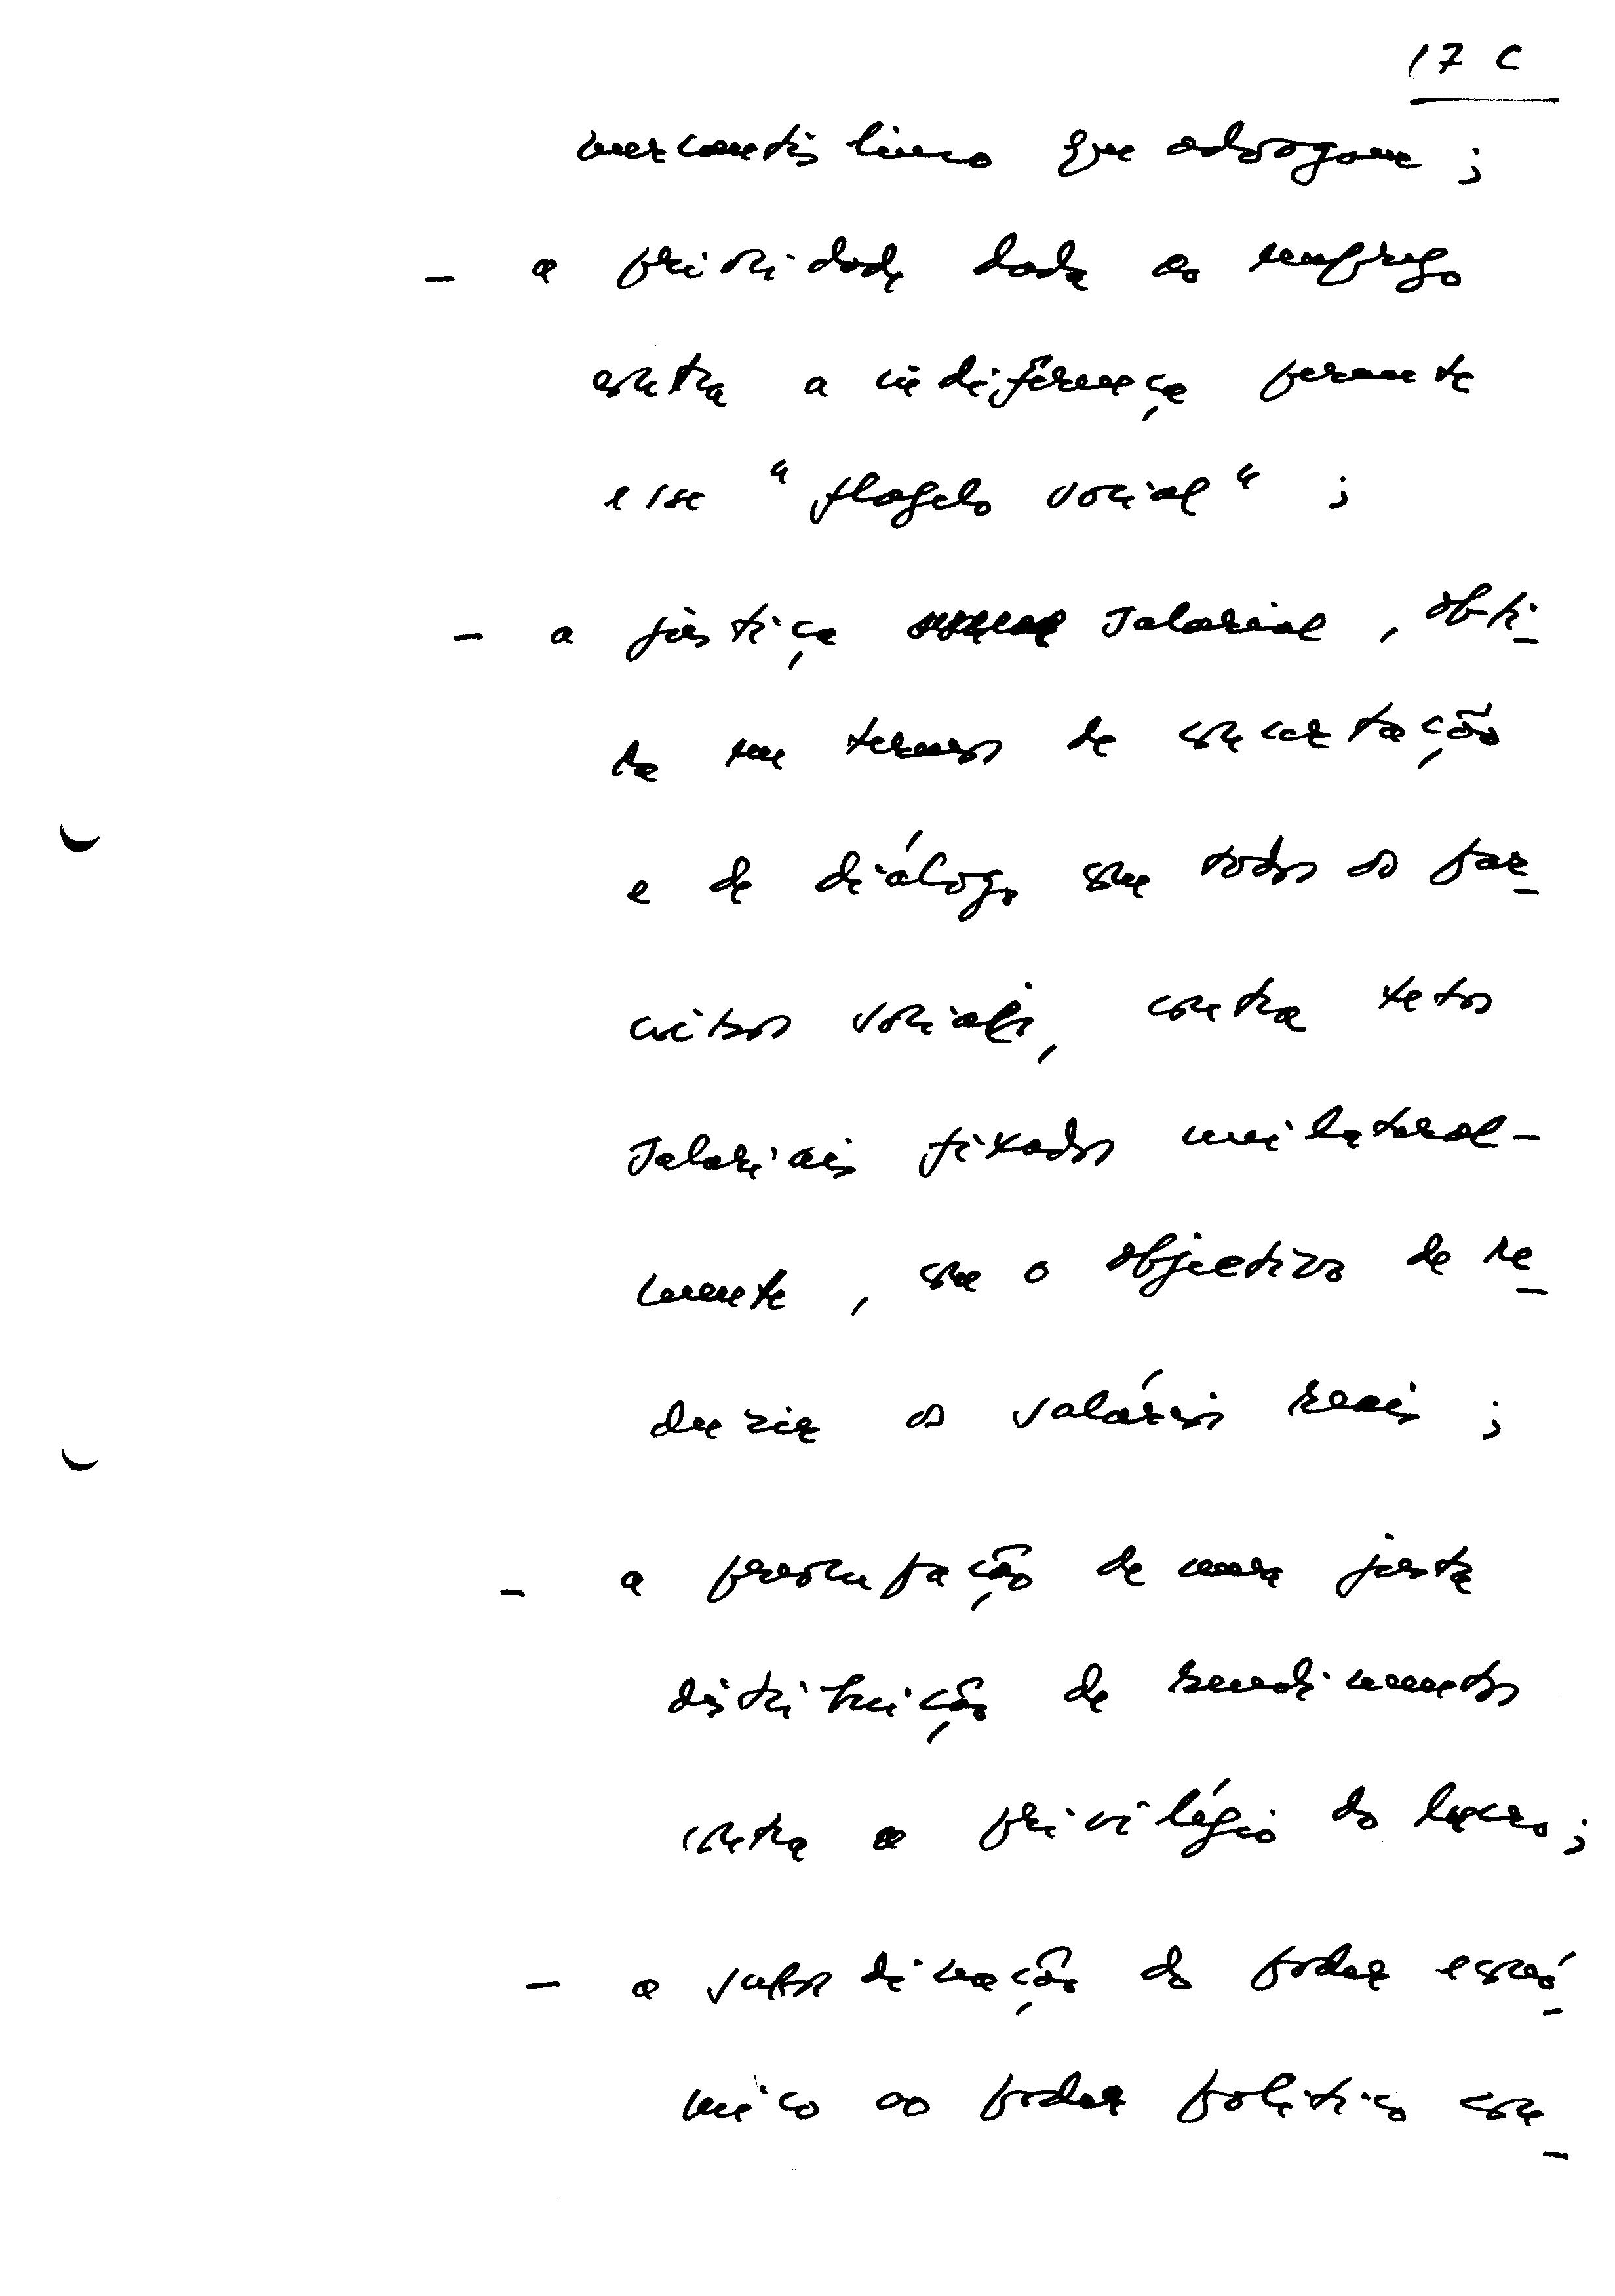 17 C
mercantilismo que advogam ;
- a prioridade dada ao emprego
contra a indiferença perante
esse " flagelo social " ;
- a justiça salarial , obti-
da em termos de concertação
e de diálogo com todos os par-
ceiros sociais, contra tetos
salariais fixados unilateral-
mente , com o objectivo de re-
duzir os salários reais ;
- a preocupação de uma justa
distribuição de rendimentos
contra o privilégio do lucro ;
- a subordinação do poder econó-
mico ao poder politico con-